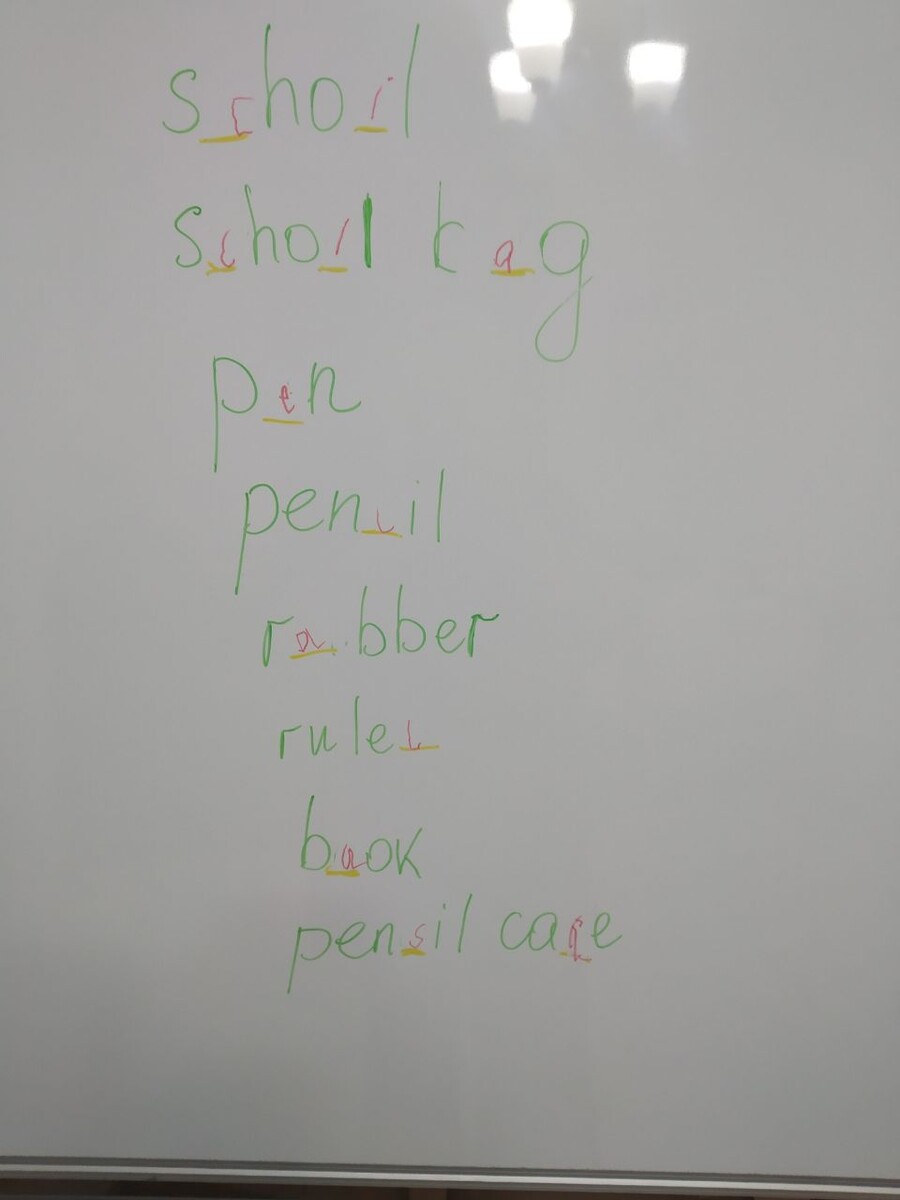 schoil
schoil bag
pen
pencil
rabber
ruler
baok
pensil case